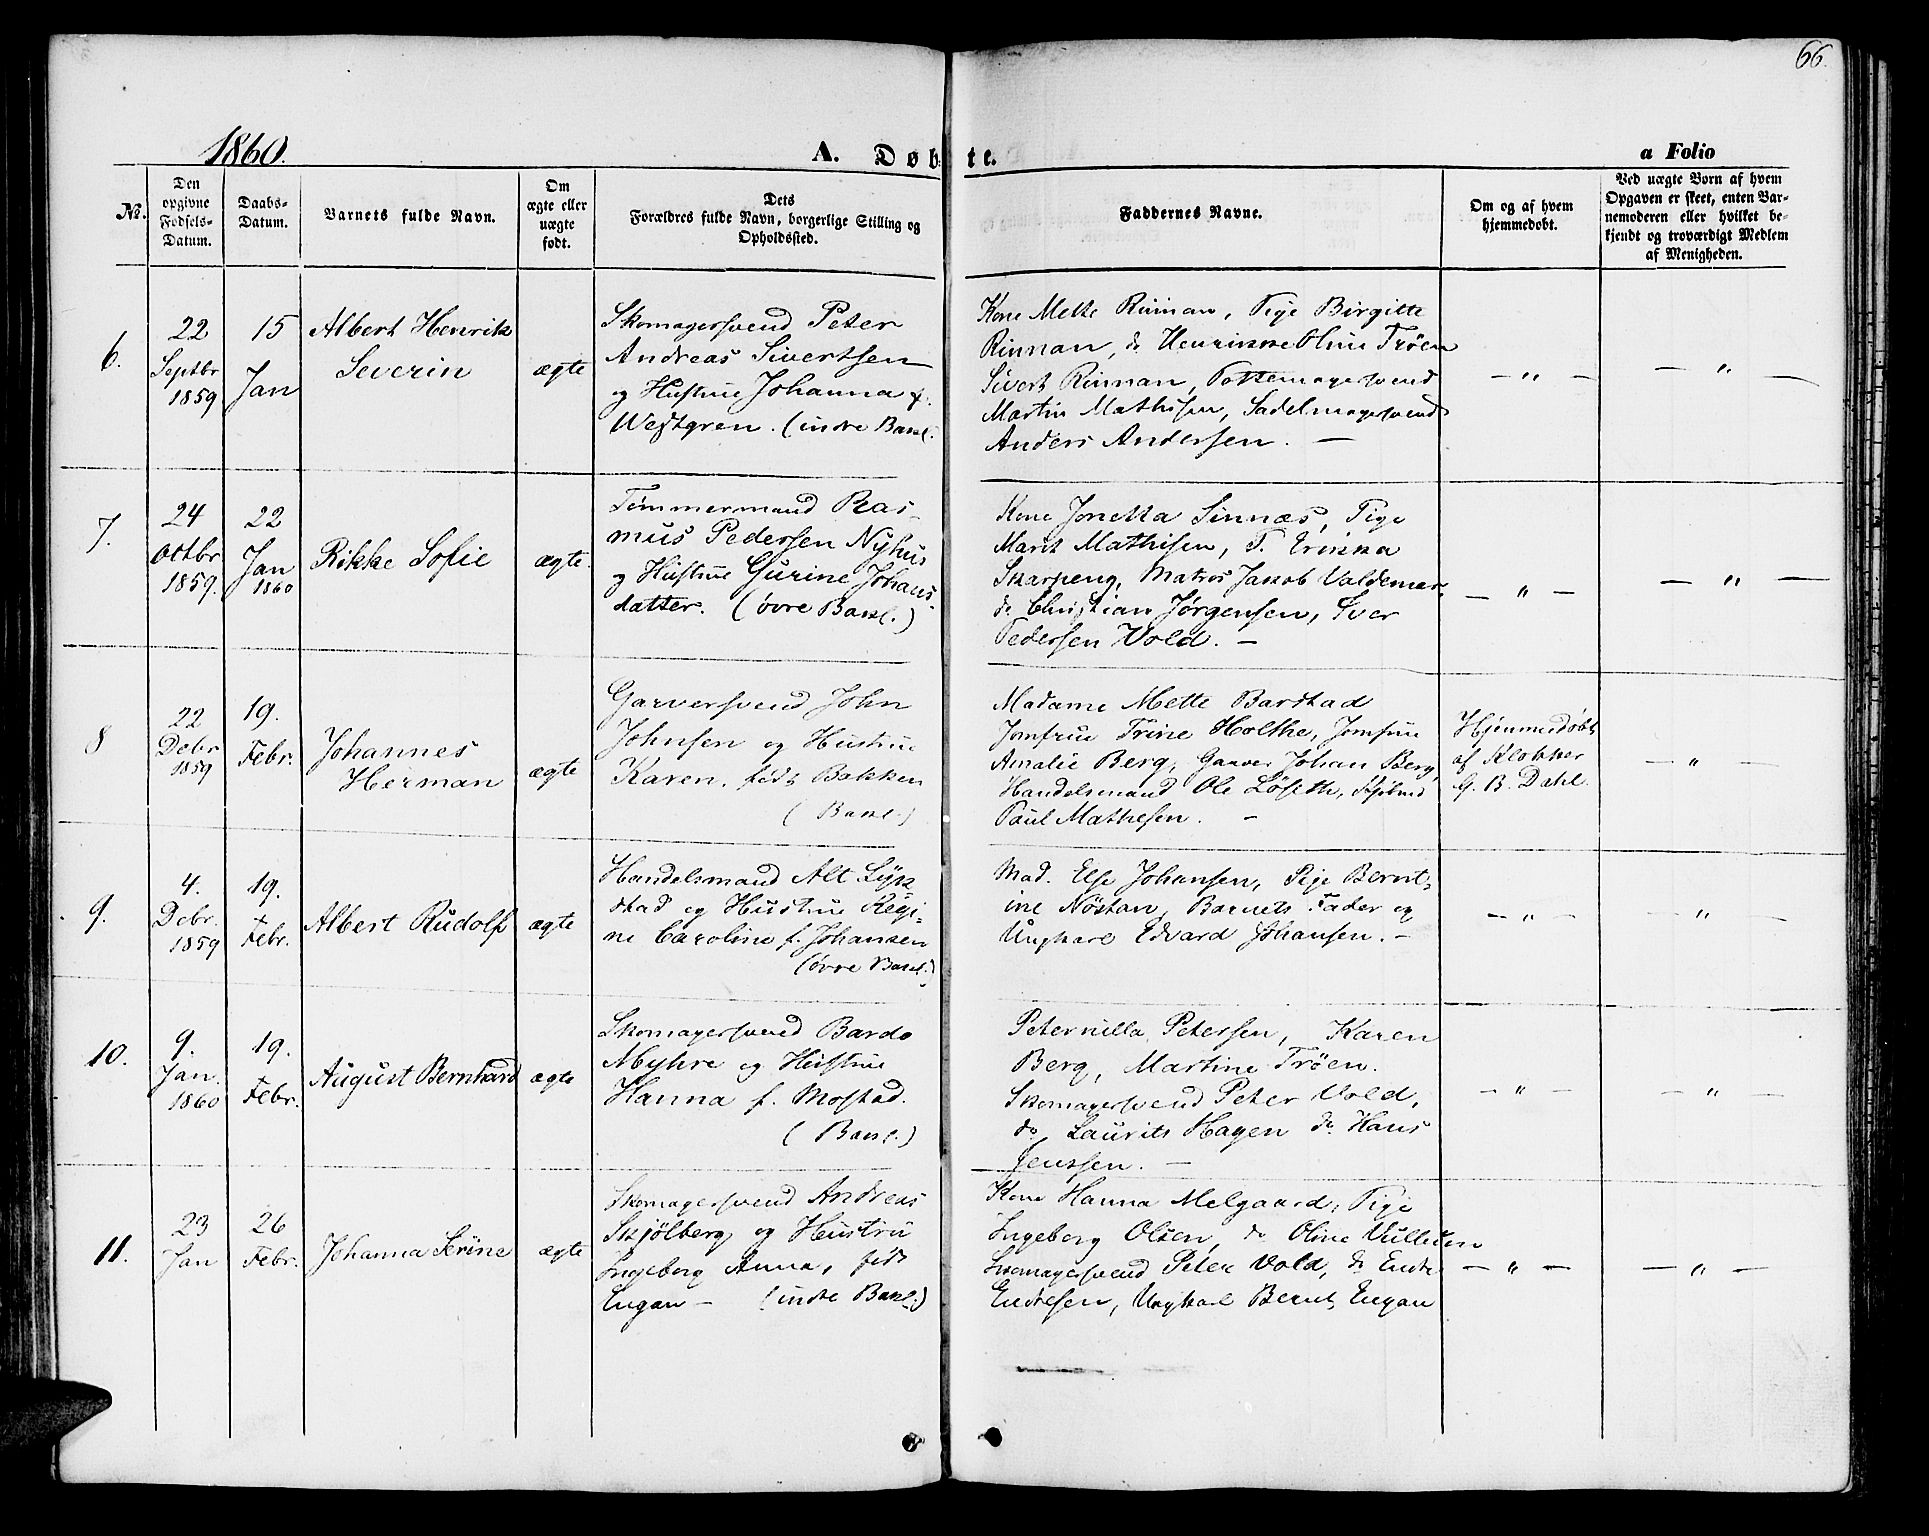 66.
1860.
A. Døbte.
a Folio
№.
Den opgivne Fødsels-Datum.
Daabs-Datum.
Barnets fulde Navn.
Om ægte eller uægte født.
Dets Forældres fulde Navn, borgerlige Stilling og Opholdssted.
Faddernes Navne.
Om og af hvem hjemmedøbt.
Ved uægte Børn af hvem Opgaven er skeet, enten Barnemoderen eller hvilket bekjendt og troværdigt Medlem af Menigheden.
6.
22 Septbr 1859
15 Jan
Albert Henrik
Severin
ægte
Skomagersvend Peter
Andreas Sivertsen
og Hustrue Johanna f.
Westgren. (indre Bakl.
Kone Mette Rinnan, Pige Birgitte
Rinnan, do Henrikke Oline Trøen
Sivert Rinnan, Pottemagersvend
Martin Mathisen, Sadelmagersvend
Anders Andersen. —
— " —
— " —
7.
24 Octbr 1859.
22 Jan 1860
Rikke Sofie
ægte.
Tømmermand Ras-
mus Pedersen Nyhus
og Hustrue Gurine Johans-
datter. (øvre Bakl.)
Kone Jonetta Sinnæs, Pige
Marit Mathisen, P.
Skarpeng, Matros Jakob Valdemar,
do Christian Jørgensen, Iver
Pedersen Vold. —
— " —
— " —
8
22 Debr 1859
19. Febr.
Johannes
Herman
ægte
Garversvend John
Johnsen og Hustrue
Karen, født Bakken
(Bakl.)
Madame Mette Barstad
Jomfrue Trine Holthe, Jomfrue
Amalie Berg, Garver Johan Berg,
Handelsmand Ole Løseth,
Paul Mathesen. —
Hjemmedøbt
af Klokker
G. B. Dahl.
— " —
9.
4. Debr. 1859
19. Febr.
Albert Rudolf
ægte
Handelsmand Alt Lyk-
stad og Hustrue Regi-
ne Caroline f. Johansen
(øvre Bakl.)
Mad. Else Johansen, Pige Bernt-
ine Nøstan, Barnets Fader og
Ungkarl Edvard Johansen. —
— " —
— " —
10.
9. Jan. 1860
19. Febr.
August Bernhard
ægte
Skomagersvend Bardo
Myhre og Hustrue
Hanna f. Mostad.
(Bakl.)
Peternilla Petersen, Karen
Berg, Martine Trøen.
Skomagersvend Peter Vold,
do Laurits Hagen do Hans
Jenssen. —
— " —
— " —
11.
23 Jan
26 Febr.
Johanna Serine
ægte
Skomagersvend Andreas
Skjølberg og Hustru
Ingeborg Anna, født
Engan — (indre Bakl.)
Kone Hanna Melgaard, Pige
Ingeborg Olsen, do Oline
Skomagersvend Peter Vold, do Endre
Endresen, Ungkarl Bernt Engan
— " —
— " —